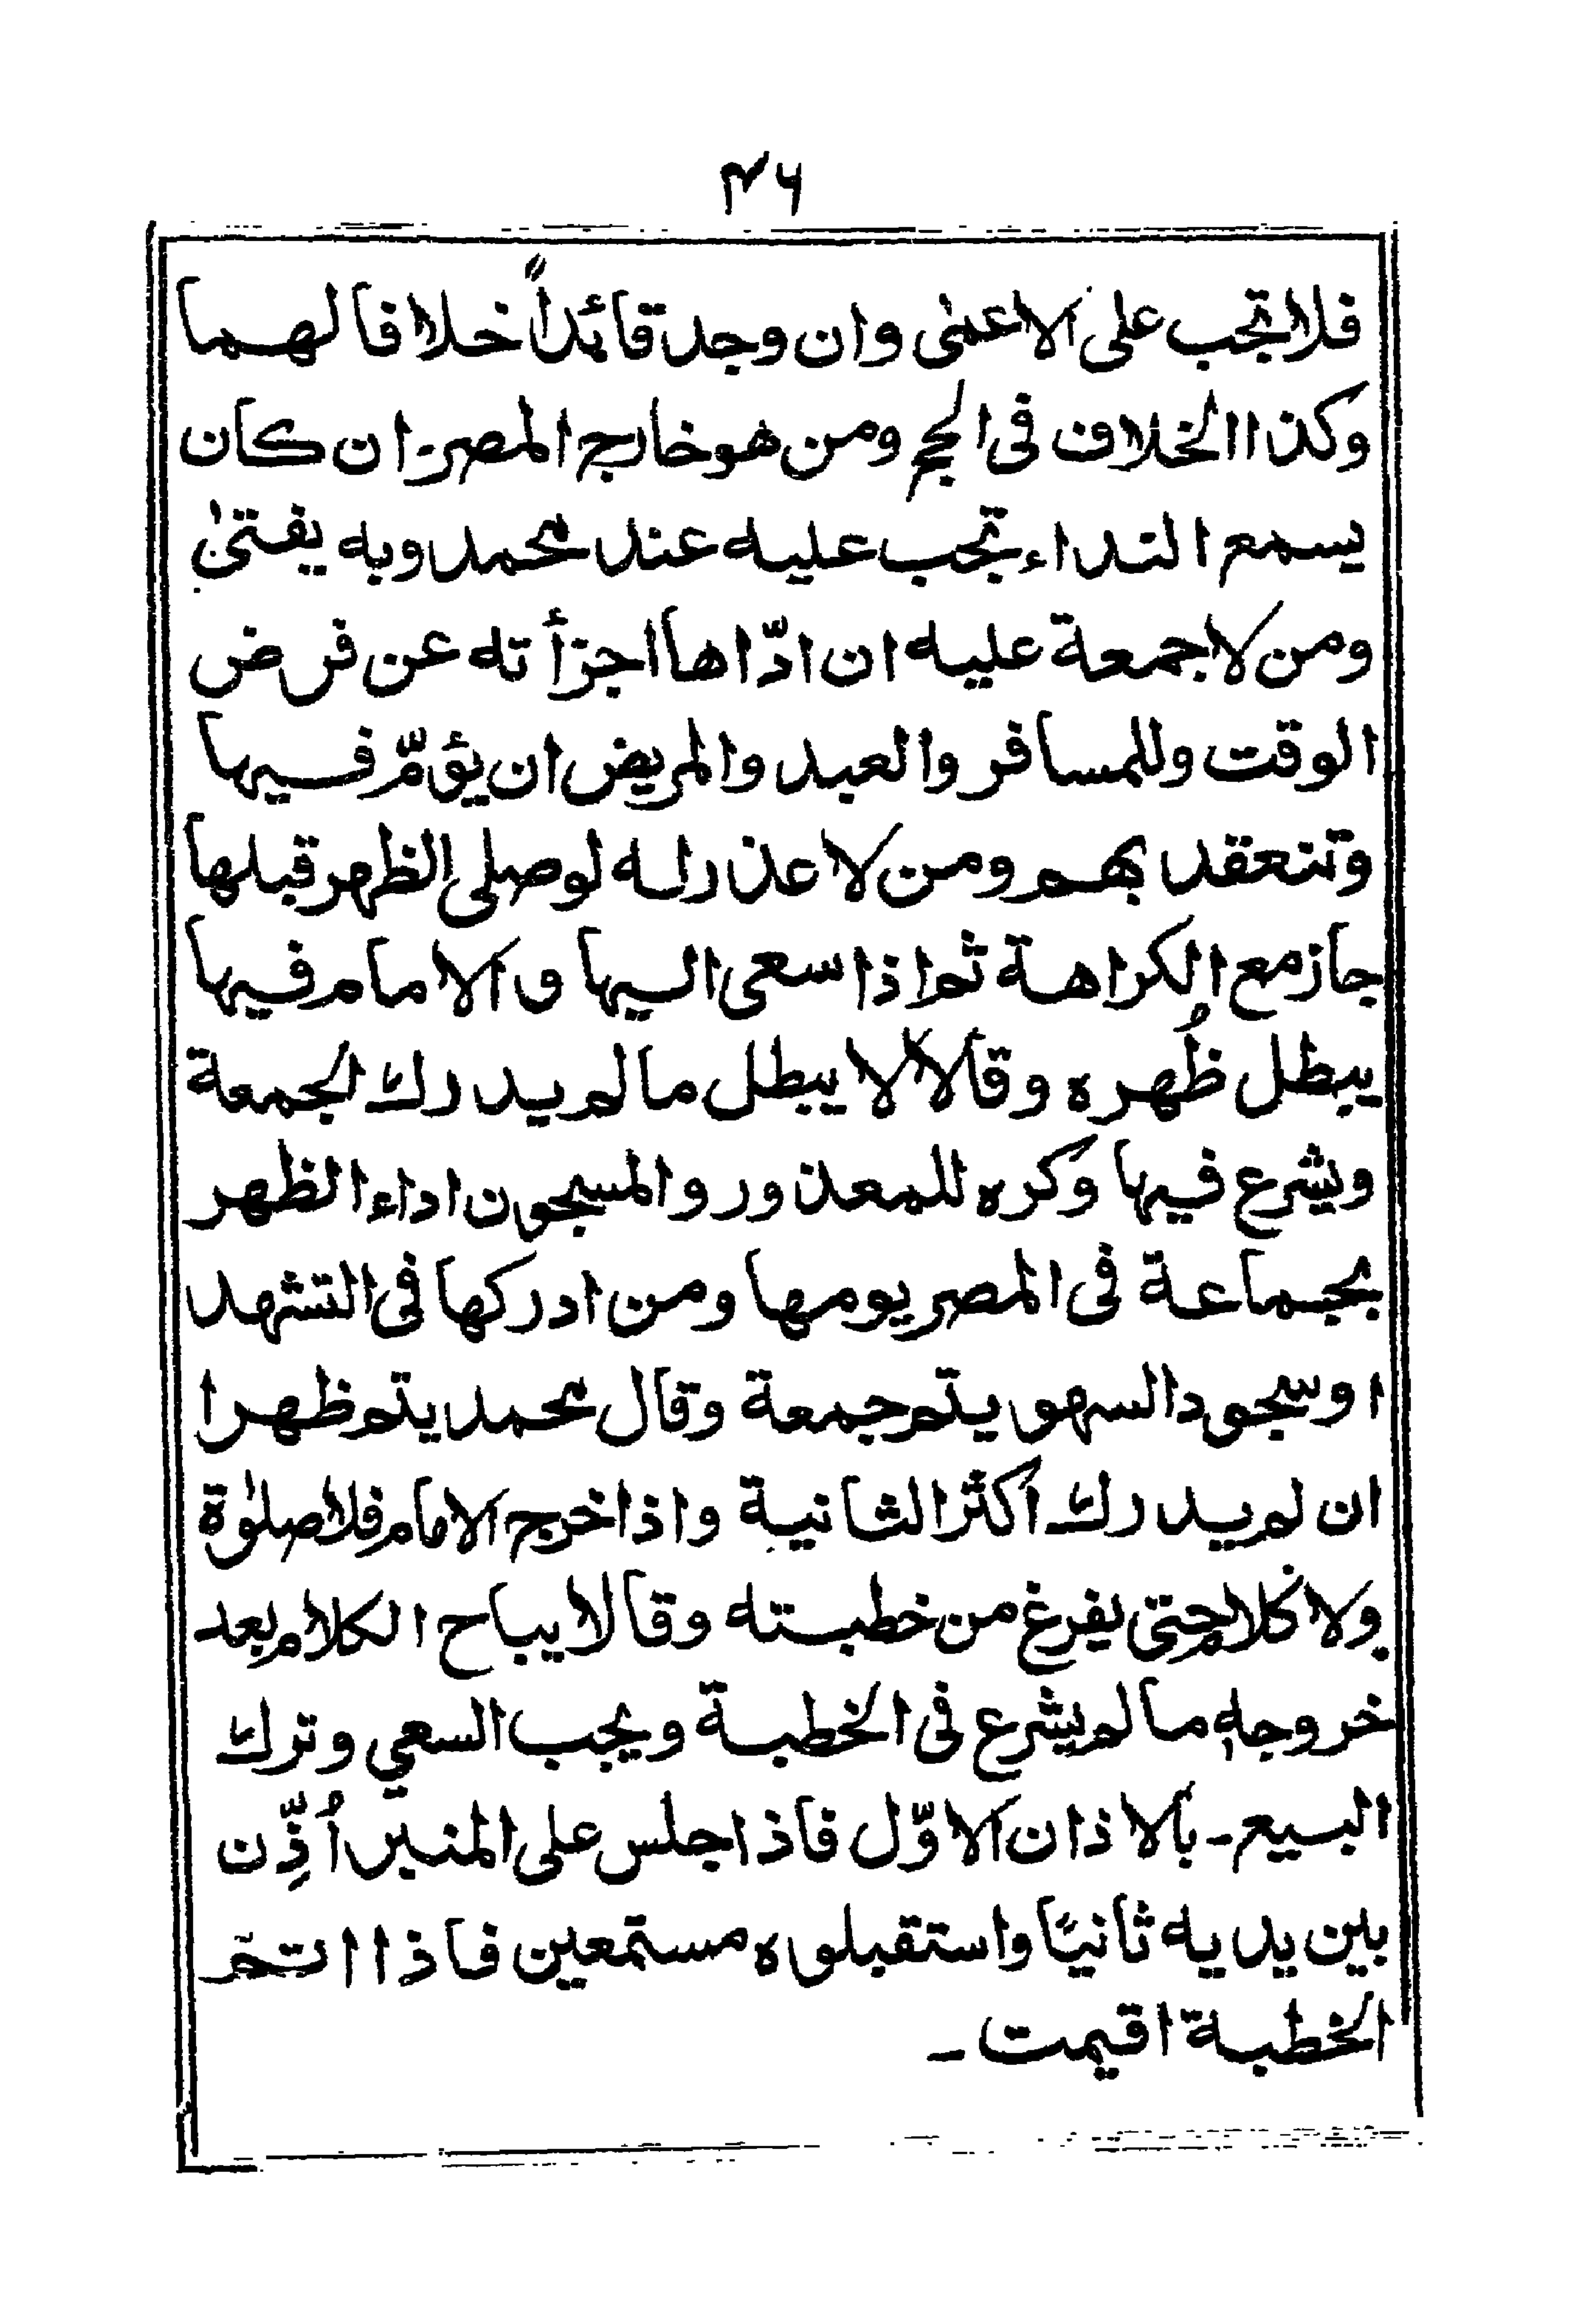 ٤٦
فلا تجب على الاعمٰى وان وجد قائداً خلافا لهما
وكذا الخلاف فى الحج ومن هو خارج المصر ان كان
يسمع النداء تجب عليه عند محمد وبه يفتىٰ
ومن لا جمعة عليه ان ادّاها اجزأته عن فرض
الوقت وللمسافر والعبد والمريض ان يؤمّ فيها
وتنعقد بهم ومن لا عذر له لو صلى الظهر قبلها
جاز مع الكراهة ثم اذا سعى اليها و الامام فيها
يبطل ظُهره وقالا لا يبطل ما لم يدرك الجمعة
ويشرع فيها وكره للمعذور و المسجون اداء الظهر
بجماعة فى المصر يومها ومن ادركها فى التشهد
او سجود السهو يتم جمعة وقال محمد يتم ظهرا
ان لم يدرك اكثر الثانية واذا خرج الامام فلا صلوٰة
ولا كلام حتى يفرغ من خطبته وقالا يباح الكلام بعد
خروجه ما لم يشرع فى الخطبة ويجب السعي وترك
البيع ـ بالاذان الاوّل فاذا جلس على المنبر اُذِّن
بين يديه ثانيًا واستقبلوه مستمعين فاذا اتم
الخطبة اقيمت ـ